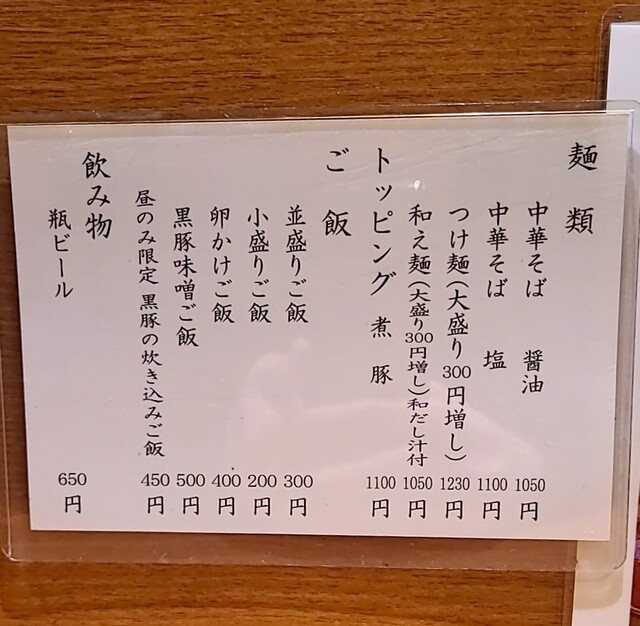 麺類
中華そば 醤油 1050円
中華そば 塩 1100円
つけ麺(大盛り300円増し) 1230円
和え麺(大盛り300円増し)和だし汁付 1050円
トッピング 煮豚 1100円
ご飯
並盛りご飯 300円
小盛りご飯 200円
卵かけご飯 400円
黒豚味噌ご飯 500円
昼のみ限定 黒豚の炊き込みご飯 450円
飲み物
瓶ビール 650円